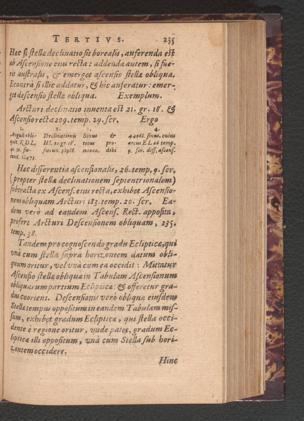 TERTIVS. 235
Hæc si stellæ declinatio sit borealis, auferenda est
ab Ascensione eius recta: addenda autem, si fue-
rit australis, & emerget ascensio stellæ obliqua.
Econtrà si illic addatur, & hic auferatur: emer-
get descensio stellæ obliqua. Exemplum.
Arcturi declinatio inuenta est 21. gr. 18. &
Ascensio recta 209. temp. 29. scr. Ergo
1. 2. 3. 4.
Anguli obli- Declinationis Sinus & 44082. sinui, cuius
Hæc differentia ascensionalis, 26. temp. 9. scr.
(propter stellæ declinationem septentrionalem)
subtracta ex Ascens. eius recta, exhibet Ascensio-
nem obliquam Arcturi 183. temp. 20. scr. Ea-
dem verò ad eandem Ascens. Rect. apposita,
profert Arcturi Descensionem obliquam, 235,
temp. 38.
Tandem pro cognoscendo gradu Eclipticæ, qui
vnà cum stella supra horizontem datum obli-
quum oritur, vel vnà cum ea occidit: Mittatur
Ascensio stellæ obliqua in Tabulam Ascensionum
obliquarum partium Eclipticæ: & offeretur gra-
dus cooriens. Descensionis verò obliquæ eiusdem
Stellæ tempus oppositum in eandem Tabulam mis-
sum, exhibet gradum Eclipticæ, qui stella occi-
dente è regione oritur, vnde patet, gradum Ec-
lipticæ illi oppositum, vnà cum Stella sub hori-
zontem occidere.
Hinc